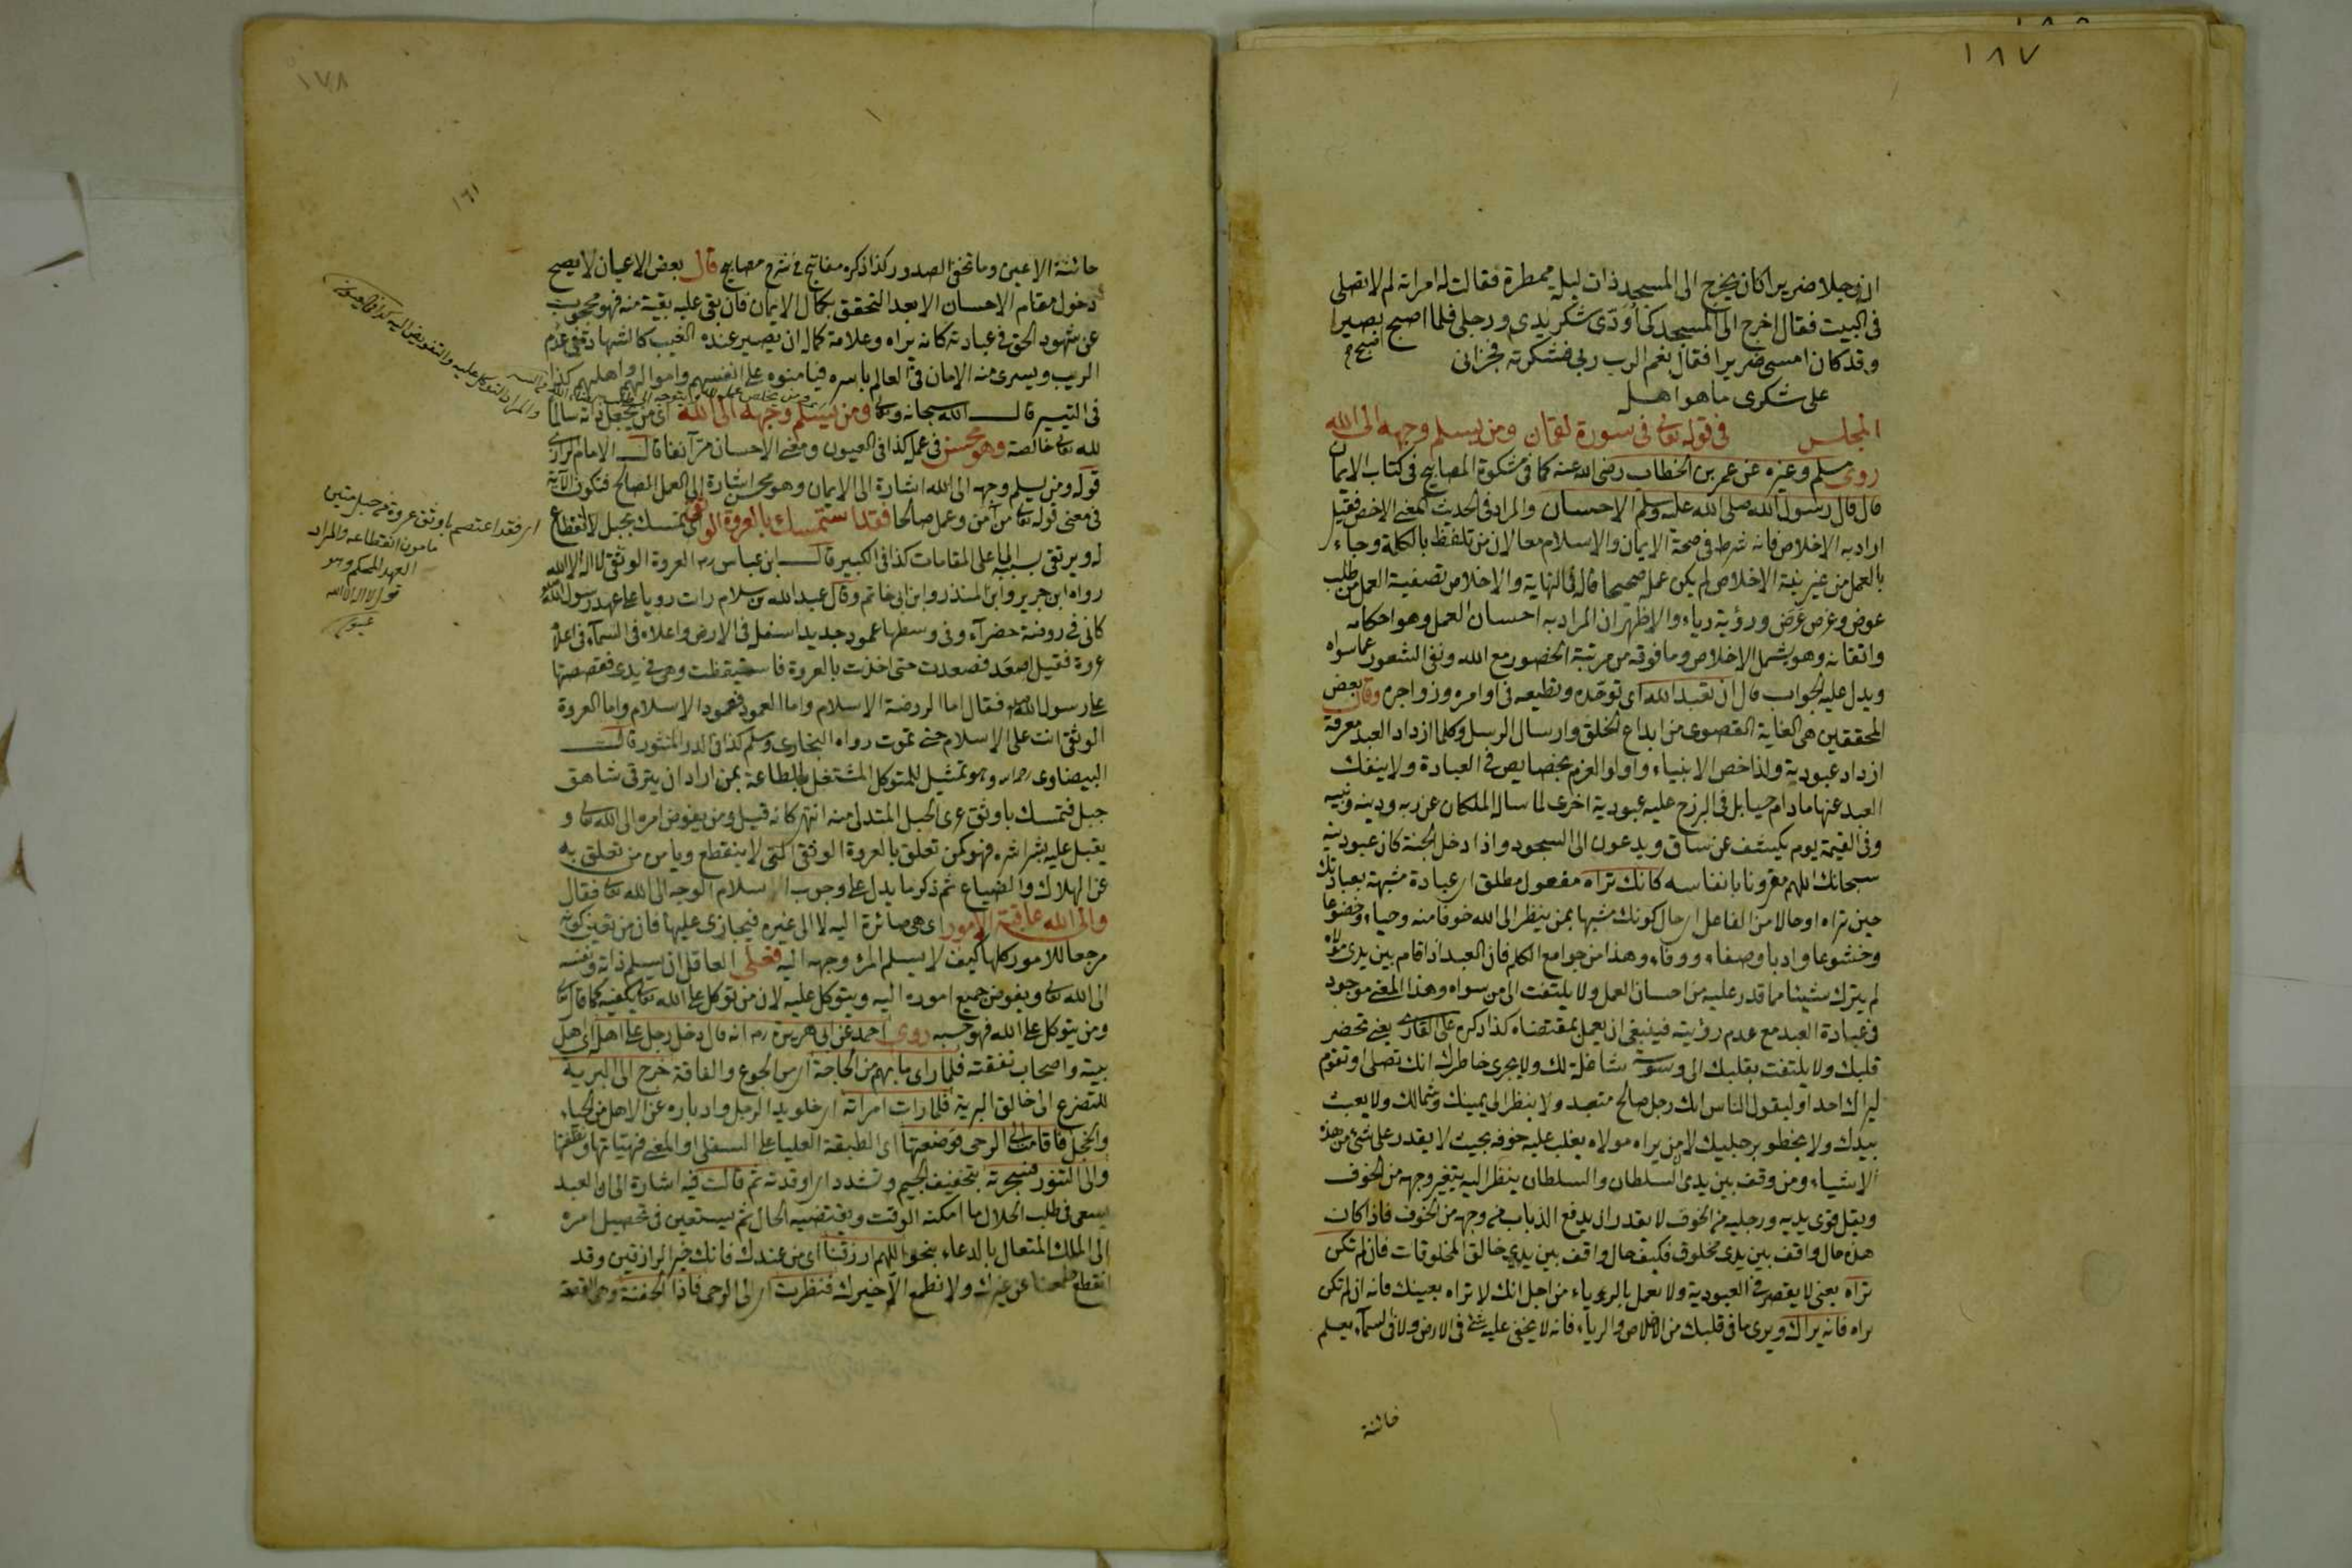 ١٨٧
ان رجلا ضريرا كان يخرج الى المسجد ذات ليلة ممطرة فقالت له امراته لم لا تصلى
فى البيت فقال اخرج الى المسجد كى اؤدى شكر يدى ورجلى فلما اصبح اصبح بصيرا
وقد كان امسى ضريرا فقال نعم الرب ربى فشكرته فجزانى
على شكرى ما هو اهل
المجلس فى قوله تعالى فى سورة لقمان ومن يسلم وجهه الى الله
روى مسلم وغيره عن عمر بن الخطاب رضى الله عنه كما فى مشكوة المصابيح فى كتاب الايمان
قال قال رسول الله صلى الله عليه وسلم الاحسان والمراد فى الحديث المعنى الاخص فقيل
اراد به الاخلاص فانه شرط فى صحة الايمان والاسلام معا لان من تلفظ بالكلمة وجاء
بالعمل من غير نية الاخلاص لم يكن عمله صحيحا قاله فى النهاية والاخلاص تصفية العمل من طلب
عوض وغرض عرض ورؤية رياء والاظهر ان المراد به احسان العمل وهو احكامه
واتقانه وهو يشمل الاخلاص وما فوقه من مرتبة الحضور مع الله ونفى الشعور عما سواه
ويدل عليه الجواب قال ان تعبد الله اى توحده وتطيعه فى اوامره وزواجره وقال بعض
المحققين هى الغاية القصوى من ابداع الخلق وارسال الرسل وكلما ازداد العبد معرفة
ازداد عبودية ولذا خص الانبياء واولوا العزم بخصايص فى العبادة ولا ينفك
العبد عنها ما دام حيا بل فى البرزخ عليه عبودية اخرى لما ساله الملكان عن ربه ودينه ونبيه
وفى القيمة يوم يكشف عن ساق ويدعون الى السجود واذا دخل الجنة كان عبوديته
سبحانك اللهم مقرونا بانفاسه كانك تراه مفعول مطلق اى عبادة مشبهة بعبادتك
حين تراه او حال من الفاعل اى حال كونك مشبها بمن ينظر الى الله خوفا منه وحياء وخضوعا
وخشوعا وادبا وصفاء ووفاء وهذا من جوامع الكلم فان العبد اذا قام بين يدى مولاه
لم يترك شيئا مما قدر عليه من احسان العمل ولا يلتفت الى من سواه وهذا المعنى موجود
فى عبادة العبد مع عدم رؤيته فينبغى ان يعمل بمقتضاه كذا ذكره على القارى يعنى تحضر
قلبك ولا يلتفت بقلبك الى وسوسة شاغلة لك ولا يجرى خاطرك انك تصلى او تقوم
ليراك احد او ليقول الناس انك رجل صالح متعبد ولا ينظر الى يمينك وشمالك ولا يعبث
بيدك ولا يخطو برجليك لان من يراه مولاه يغلب عليه خوفه بحيث لا يقدر على شئ من هذه
الاشياء ومن وقف بين يدى السلطان والسلطان ينظر اليه يتغير وجهه من الخوف
ويقل قوى يديه ورجليه من الخوف لا يقدر ان يدفع الذباب من وجهه من الخوف فاذا كانت
هذه حال واقف بين يدى مخلوق فكيف حال واقف بين يدى خالق المخلوقات فان لم تكن
تراه يعنى لا يقصر فى العبودية ولا يعمل بالرياء من اجل انك لا تراه بعينك فانه ان لم تكن
تراه فانه يراك ويرى ما فى قلبك من الاخلاص والرياء فانه لا يخفى عليه شئ فى الارض ولا فى السماء يعلم
خائنة
١٧٨
١٦١
خائنة الاعين وما تخفى الصدور كذا ذكره مفاتيح فى شرح مصابيح قال بعض الاعيان لا يصح
دخول مقام الاحسان الا بعد التحقق بكمال الايمان فان بقى عليه بقية منه فهو محجوب
عن شهود الحق فى عبادته كانه يراه وعلامة كماله ان يصير عنده الغيب كالشهادة فى عدم
الريب ويسرى منه الامان فى العالم باسره فيامنوه على انفسهم واموالهم واهليهم كذا
فى التيسير قال الله سبحانه وتعالى ومن يسلم وجهه الى الله اى من يجعل ذاته سالما
لله تعالى خالصة وهو محسن فى عمله كذا فى العيون ومعنى الاحسان مر آنفا قال الامام الرازى
قوله ومن يسلم وجهه الى الله اشارة الى الايمان وهو محسن اشارة الى العمل الصالح فتكون الآية
فى معنى قوله تعالى من آمن وعمل صالحا فقد استمسك بالعروة الوثقى اى تمسك بحبل لا انقطاع
له ويرتقى بسببه الى اعلى المقامات كذا فى الكبير قال ابن عباس رضـ العروة الوثقى لا اله الا الله
رواه ابن جرير وابن المنذر وابن ابى حاتم وقال عبد الله بن سلام رات رويا على عهد رسول الله
كانى فى روضة خضراء وفى وسطها عمود حديد اسفله فى الارض واعلاه فى السماء فى اعلاه
عروة فقيل اصعد فصعدت حتى اخذت بالعروة فاستيقظت وهى فى يدى فقصصتها
على رسول الله فقال اما الروضة الاسلام واما العمود فعمود الاسلام واما العروة
الوثقى انت على الاسلام حتى تموت رواه البخارى ومسلم كذا فى الدر المنثور قال
البيضاوى رحـ وهو تمثيل للمتوكل المشتغل بالطاعة بمن اراد ان يترقى شاهق
جبل فتمسك باوثق عرى الحبل المتدلى منه انتهى كانه قيل ومن يفوض امره الى الله تعالى و
يقبل عليه بشراشره فهو كمن تعلق بالعروة الوثقى التى لا ينقطع ويامن من تعلق به
عن الهلاك والضياع ثم ذكر ما يدل على وجوب اسلام الوجه الى الله تعالى فقال
والى الله عاقبة الامور اى هى صائرة اليه لا الى غيره فيجازى عليها فان من تعين كونه
مرجعا للامور كلها كيف لا يسلم المرء وجهه اليه فعلى العاقل ان يسلم ذاته ونفسه
الى الله تعالى ويفوض جميع اموره اليه ويتوكل عليه لان من توكل على الله تعالى يكفيه كما قال تعالى
ومن يتوكل على الله فهو حسبه روى احمد عن ابى هريرة رضـ انه قال دخل رجل على اهله اى اهل
بيته واصحاب نفقته فلما راى ما بهم من الحاجة اى من الجوع والفاقة خرج الى البرية
للتضرع الى خالق البرية فلما رات امراته اى خلو يد الرجل وادباره عن الاهل من الحياء
والخجل فاقامت الى الرحى فوضعتها اى الطبقة العليا على السفلى او المعنى فهيئاتها ونظفتها
والى التنور فسجرته بتخفيف الجيم وتشدد اى اوقدته ثم قالت فيه اشارة الى ان العبد
يسعى فى طلب الحلال ما امكنه الوقت ويقتضيه الحال ثم يستعين فى تحصيل امره
الى الملك المتعال بالدعاء بنحو اللهم ارزقنا اى من عندك فانك خير الرازقين وقد
انقطع طمعنا عن غيرك ولا نطمع الا خيرك فنظرت اى الى الرحى فاذا الجفنة وهى القصعة
والمراد التوكل عليه والتفويض اليه كذا فى العيون
اى فقد اعتصم باوثق عروة من حبل متين
مامون انقطاعه والمراد
العهد المحكم وهو
قول لا اله الا الله
عيون